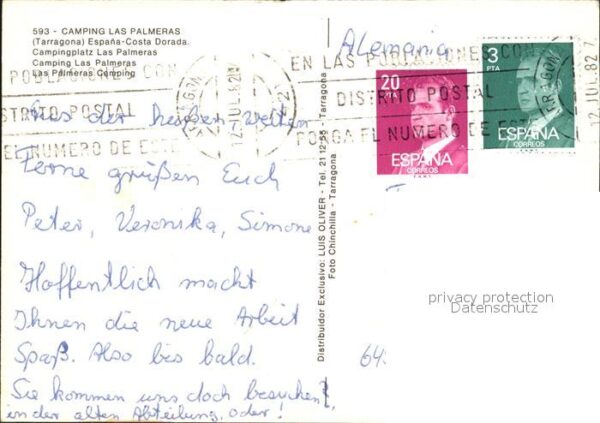 593 - CAMPING LAS PALMERAS
(Tarragona) España-Costa Dorada.
Campingplatz Las Palmeras
Camping Las Palmeras
Las Palmeras Camping
Alemania
EN LAS POBLACIONES CON
DISTRITO POSTAL
PONGA EL NUMERO DE ESTE
POBLACIONES CON
DISTRITO POSTAL
EL NUMERO DE ESTE
12 JUL. 82
20
PTA
ESPAÑA
CORREOS
3
PTA
ESPAÑA
CORREOS
12 JUL. 82
Aus der heißen, weiten
Ferne grüßen Euch
Peter, Veronika, Simone
Hoffentlich macht
Ihnen die neue Arbeit
Spaß. Also bis bald.
Sie kommen uns doch besuchen,
in der alten Abteilung, oder!
Distribuidor Exclusivo: LUIS OLIVER - Tel. 21 12 55 - Tarragona
Foto Chinchilla - Tarragona
privacy protection
Datenschutz
64.